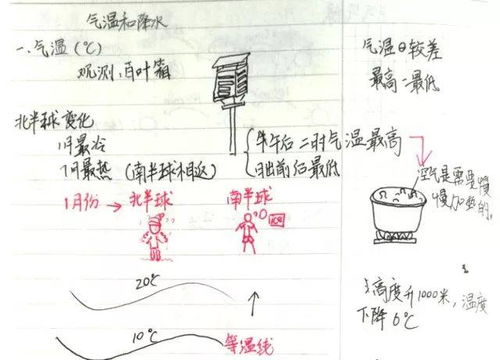 气温和降水
一、气温 (℃)
观测：百叶箱
气温日较差
最高－最低
北半球变化
1月最冷
7月最热 (南半球相反)
午后二时气温最高
日出前后最低
空气是需要慢
慢加热的。
1月份 → 北半球 南半球
20℃
10℃
等温线
高度升1000米，温度
下降6℃